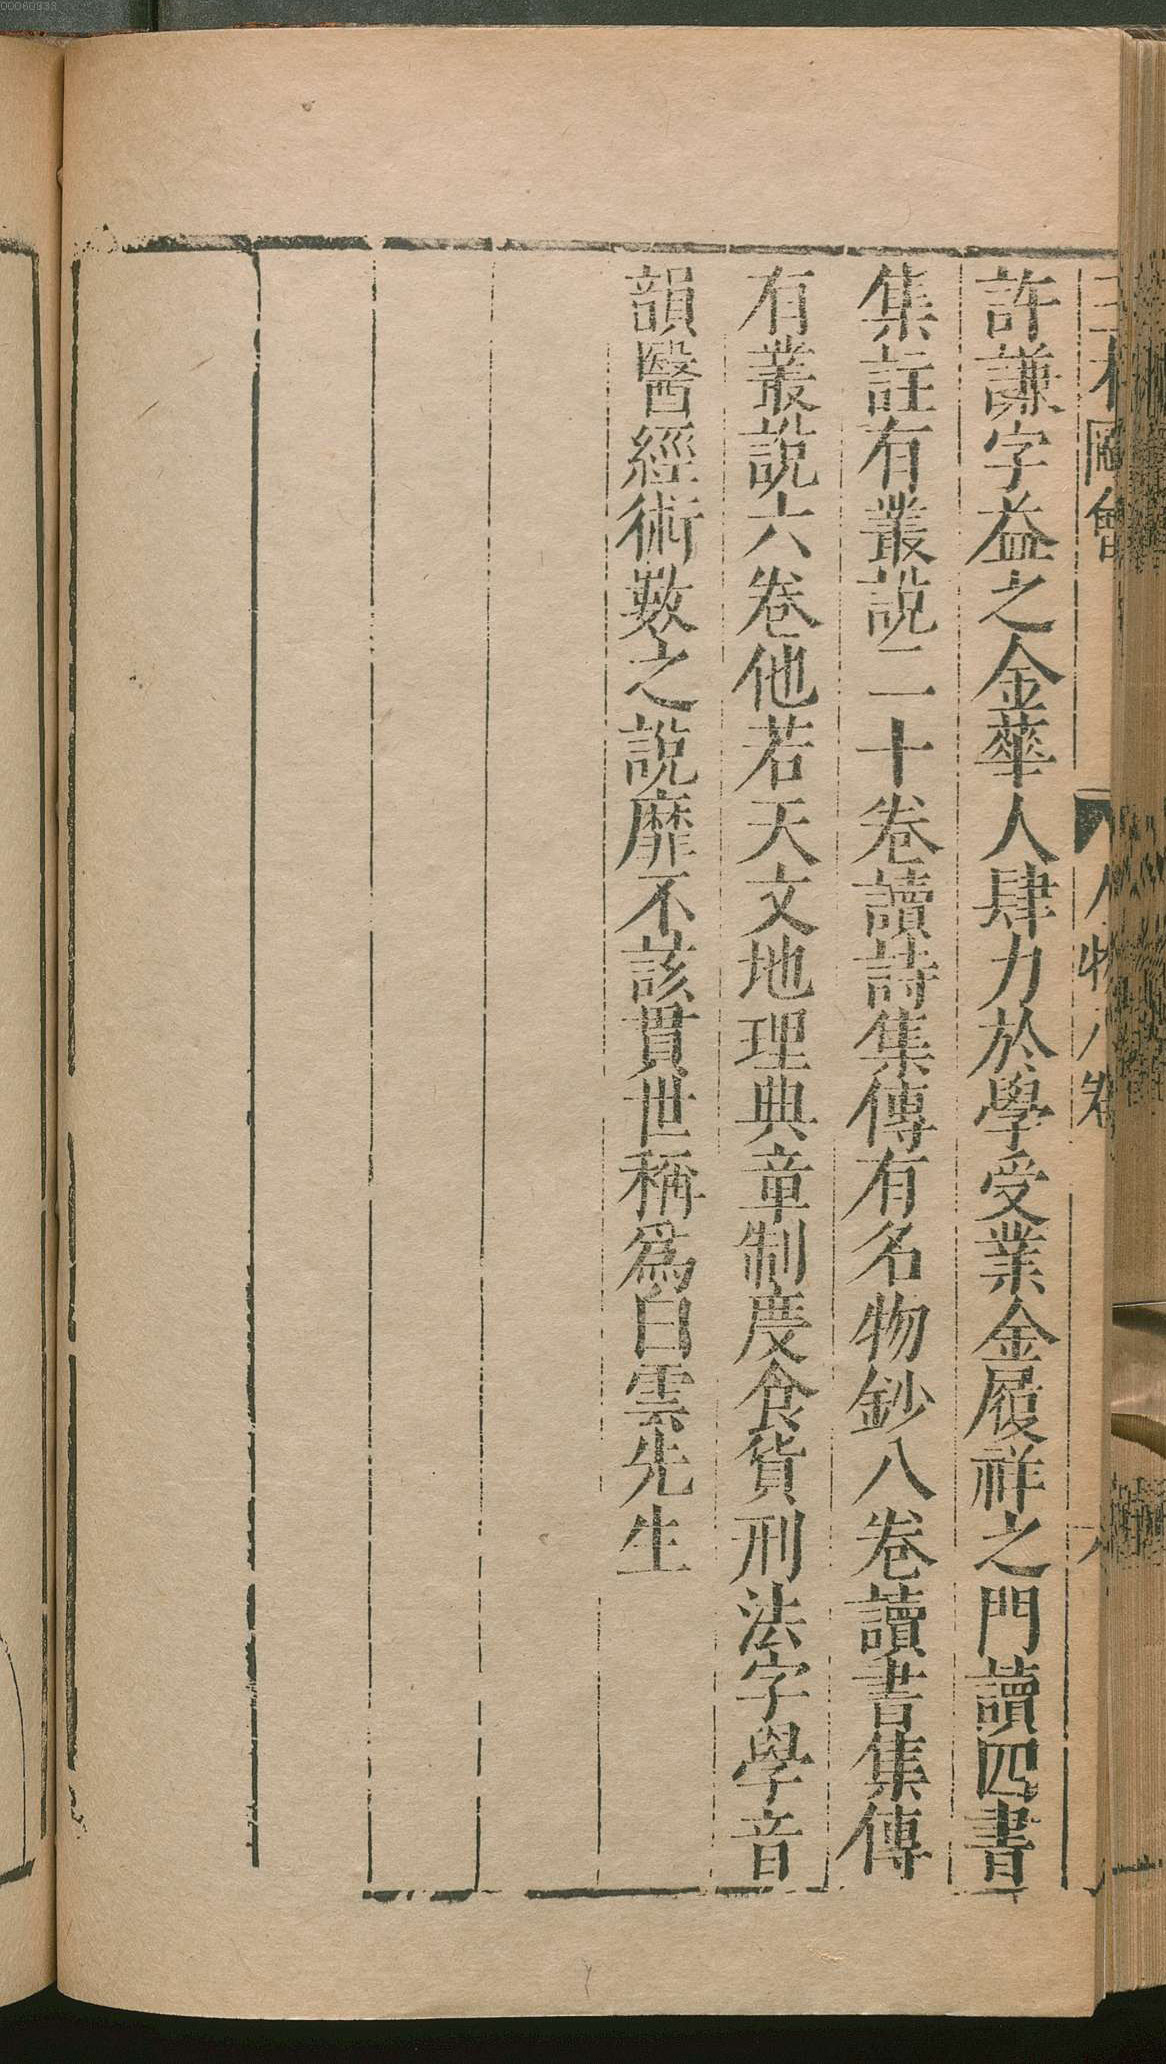 三才圖會 人物八卷
許謙字益之金華人肆力於學受業金履祥之門讀四書
集註有叢說二十卷讀詩集傳有名物鈔八卷讀書集傳
有叢說六卷他若天文地理典章制度食貨刑法字學音
韻醫經術數之說靡不該貫世稱爲白雲先生
00060933